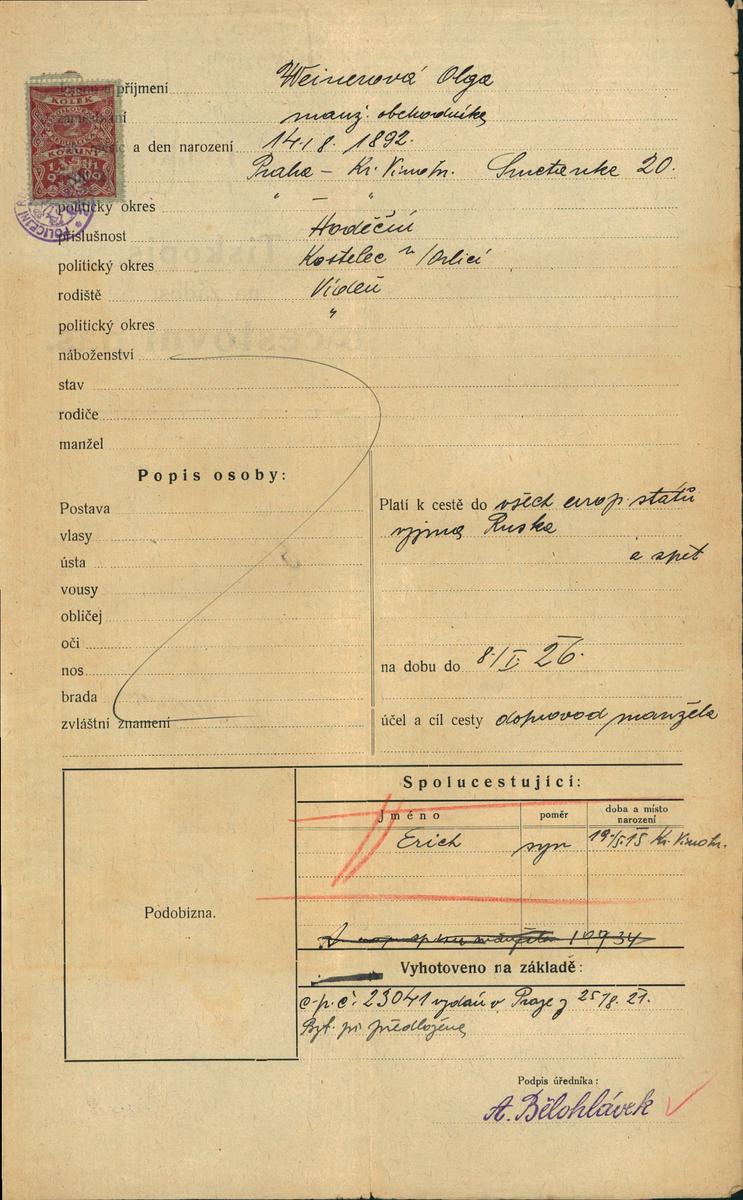 příjmení Weinerová Olga
KOLEK
manž. obchodníka
a den narození 14./8. 1892.
Praha – Kr. Vinohr. Smetanka 20.
politický okres " — "
příslušnost Hoděčín
politický okres Kostelec n/Orlicí
rodiště Vídeň
politický okres "
náboženství
stav
rodiče
manžel
Popis osoby:
Postava
vlasy
ústa
vousy
obličej
oči
nos
brada
zvláštní znamení
Platí k cestě do všech evrop. států
vyjma Ruska
a zpět
na dobu do 8./I. 26.
účel a cíl cesty doprovod manžela
Spolucestující:
Jméno poměr doba a místo narození
Erich syn 19/5.15 Kr. Vinohr.
Podobizna.
Vyhotoveno na základě:
c. p. č. 23041 vydaný v Praze z 25/8. 21.
předložena
Podpis úředníka:
A. Bělohlávek